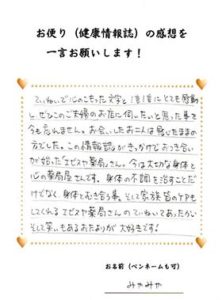 お便り（健康情報誌）の感想を
一言お願いします！
ていねいで心のこもった文字と1言1言にとても感動
し、ぜひこのご夫婦のお店に伺いたいと思った事を
今も忘れません。お会いしたお二人は感じたままの方
でした。この情報誌がきっかけでお付き合い
が始ったエビスヤ薬局さん。今は大切な身体と
心の薬局屋さんです。身体の不調を治すことだ
けでなく、身体とむき合う事、そして家族皆のケアも
してくれるエビスヤ薬局さんのていねいであったかい
そして笑いもあるおたよりが大好きです！
お名前（ペンネームも可）
みやみや